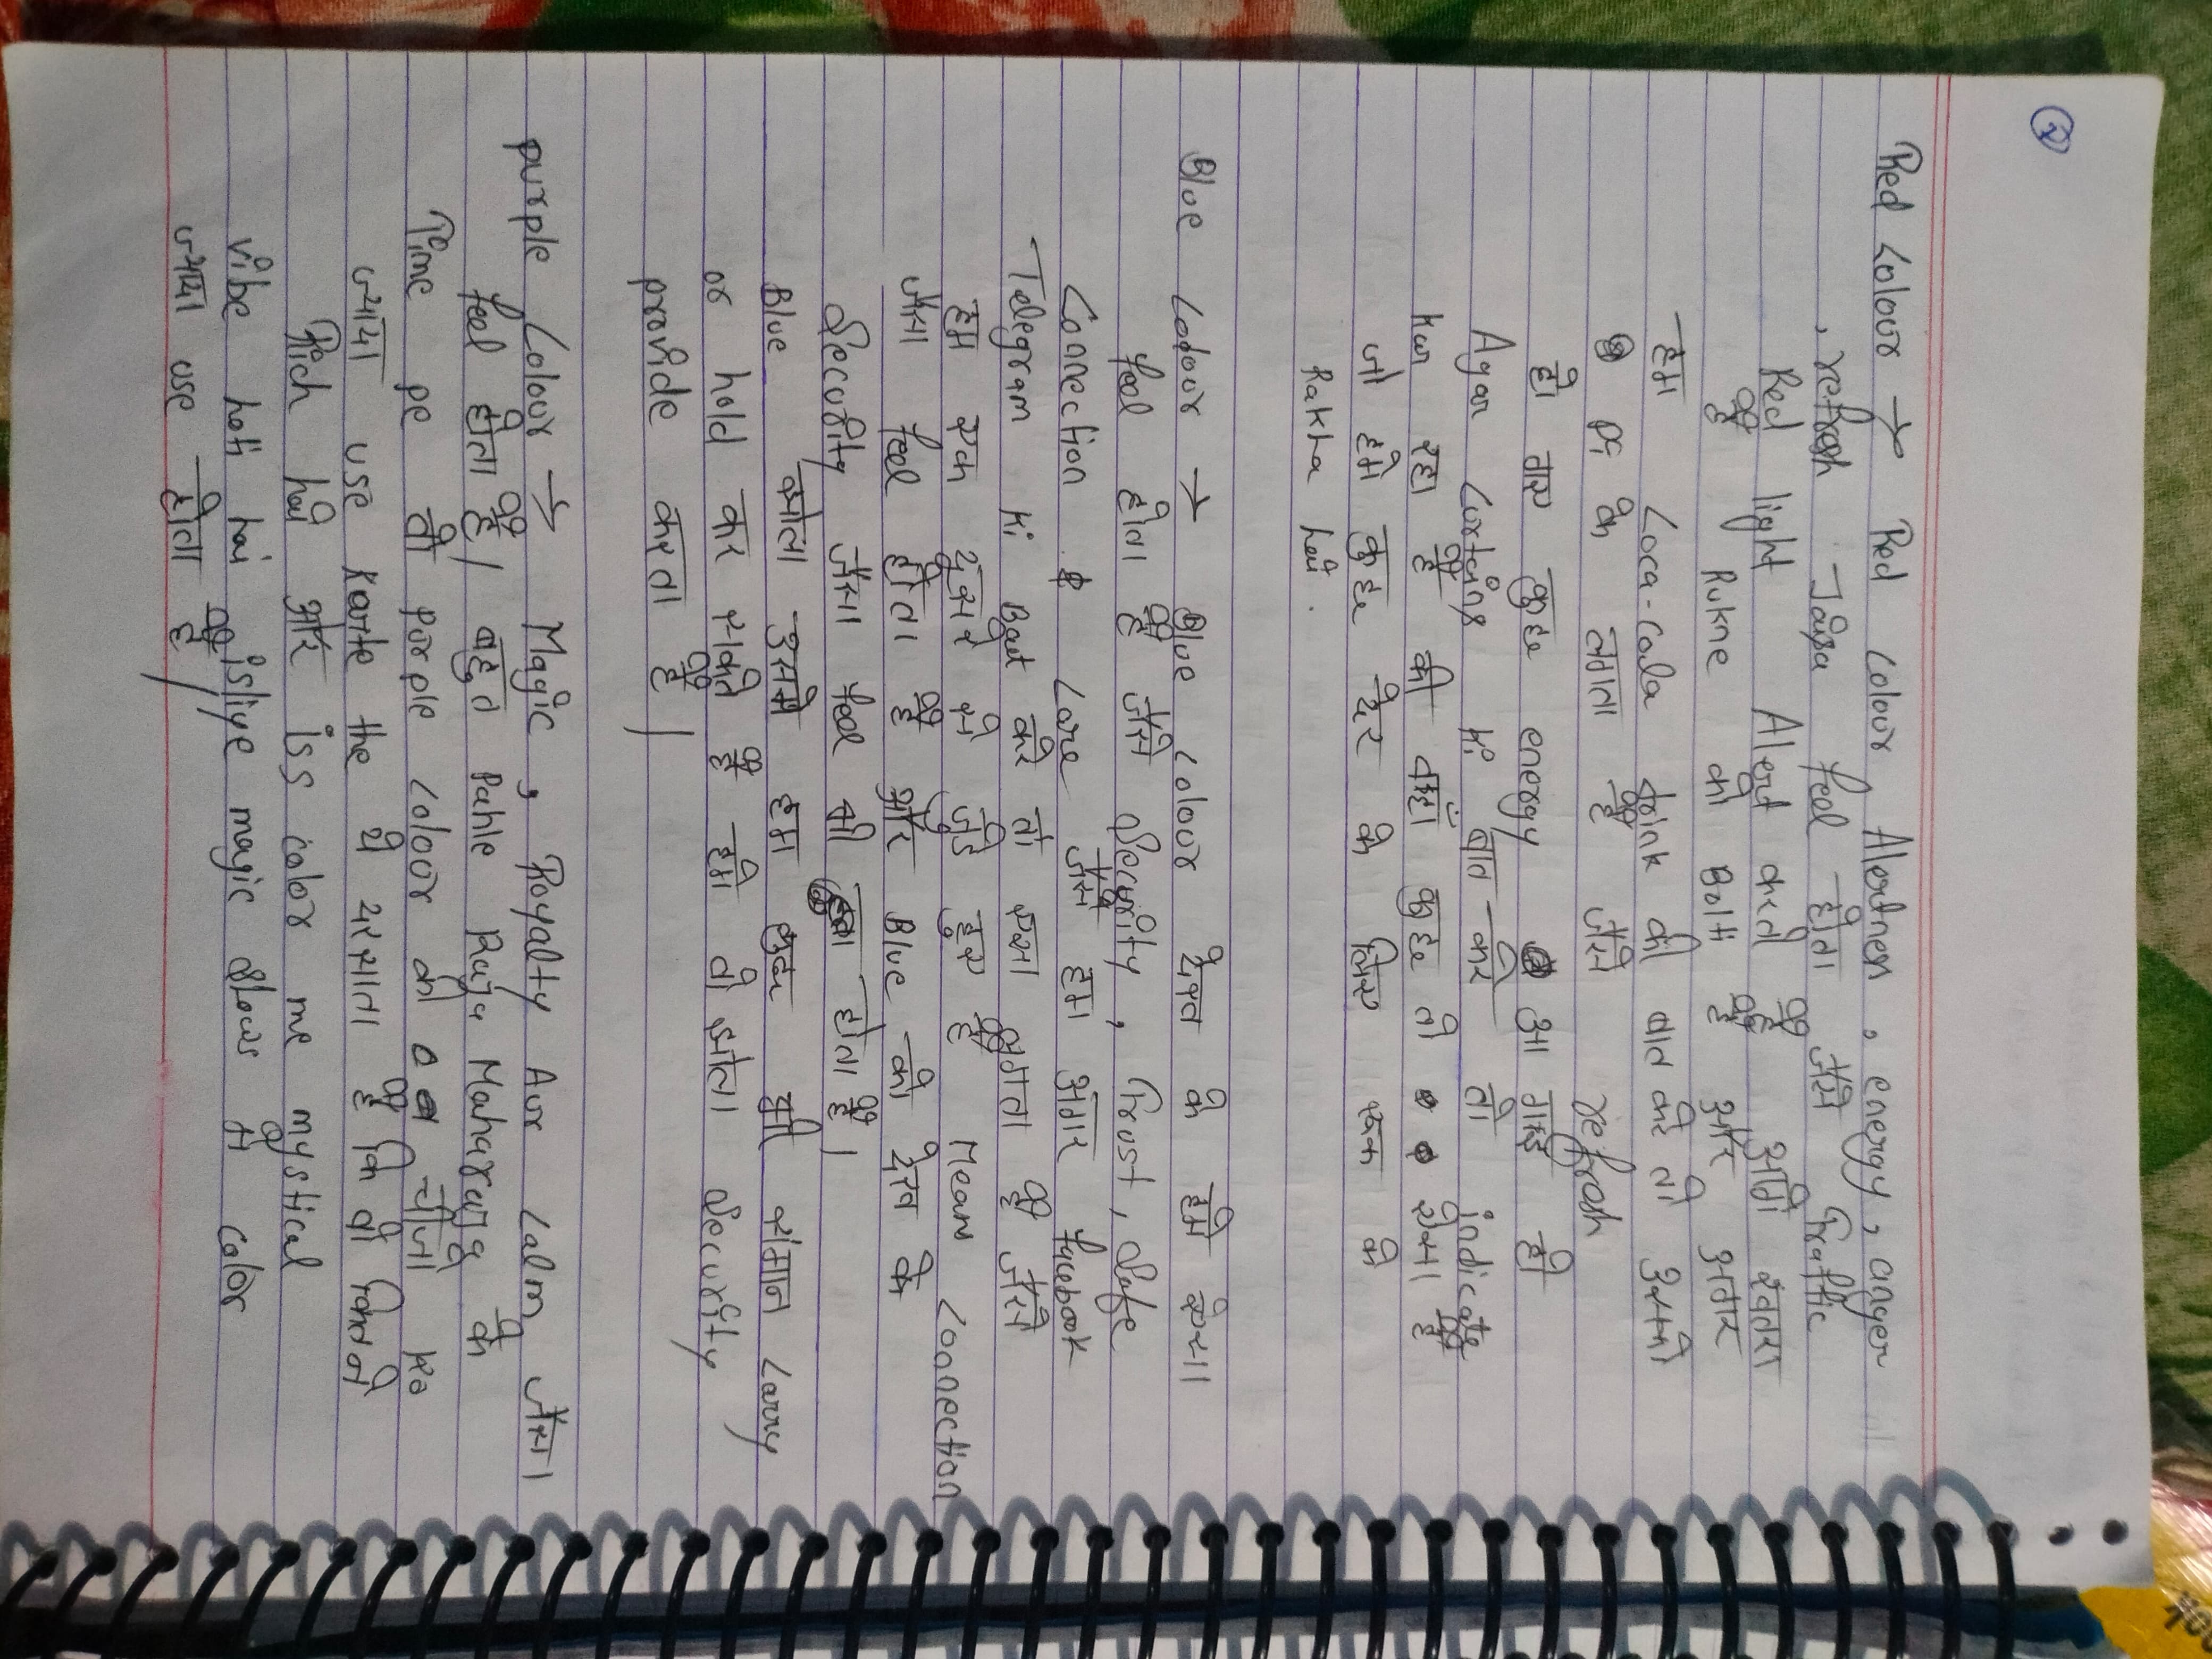 2
Red Colour → Red Colour Alertnen, energy, anger
, refresh जैसा feel होता है जैसे Traffic
Red light Alert करती है आगे खतरा
है Rukne को Bolti है और अगर
हम Coca-Cola drink की बात करे तो उसमे
के लगाता है जैसे refresh
हो गए कुछ energy आ गई हो
Agar Cortning ki बात करे तो indicate
kar रहा है की वहां कुछ तो ऐसा है
जो हमे कुछ देर के लिए रुक के
Rakha hai.
Blue Colour → Blue Colour देखत के हमे ऐसा
feel होता है जैसे Security, Trust, Safe
Connection & Care जैसे हम अगर facebook
Telegram ki Baat करे तो ऐसा लगता है जैसे
हम एक दूसरे से जुड़े हुए है Mean Connection
जैसा feel होता है और Blue को देख के
Security जैसा feel भी होता है।
Blue झोला उसमे हम कुछ भी सामान Carry
or hold कर सकते है हमे वो झोला Security
provide करता है।
purple Colour → Magic, Royalty Aur Calm जैसा
feel होता है। बहुत Pahle Raja Maharaja के
Time pe तो purple Colour की चीजो ko
ज्यादा use Karte the ये दरसाता है कि वो कितने
Rich hai और iss color me mystical
vibe hoti hai isliye magic shows में color
ज्यादा use होता है।